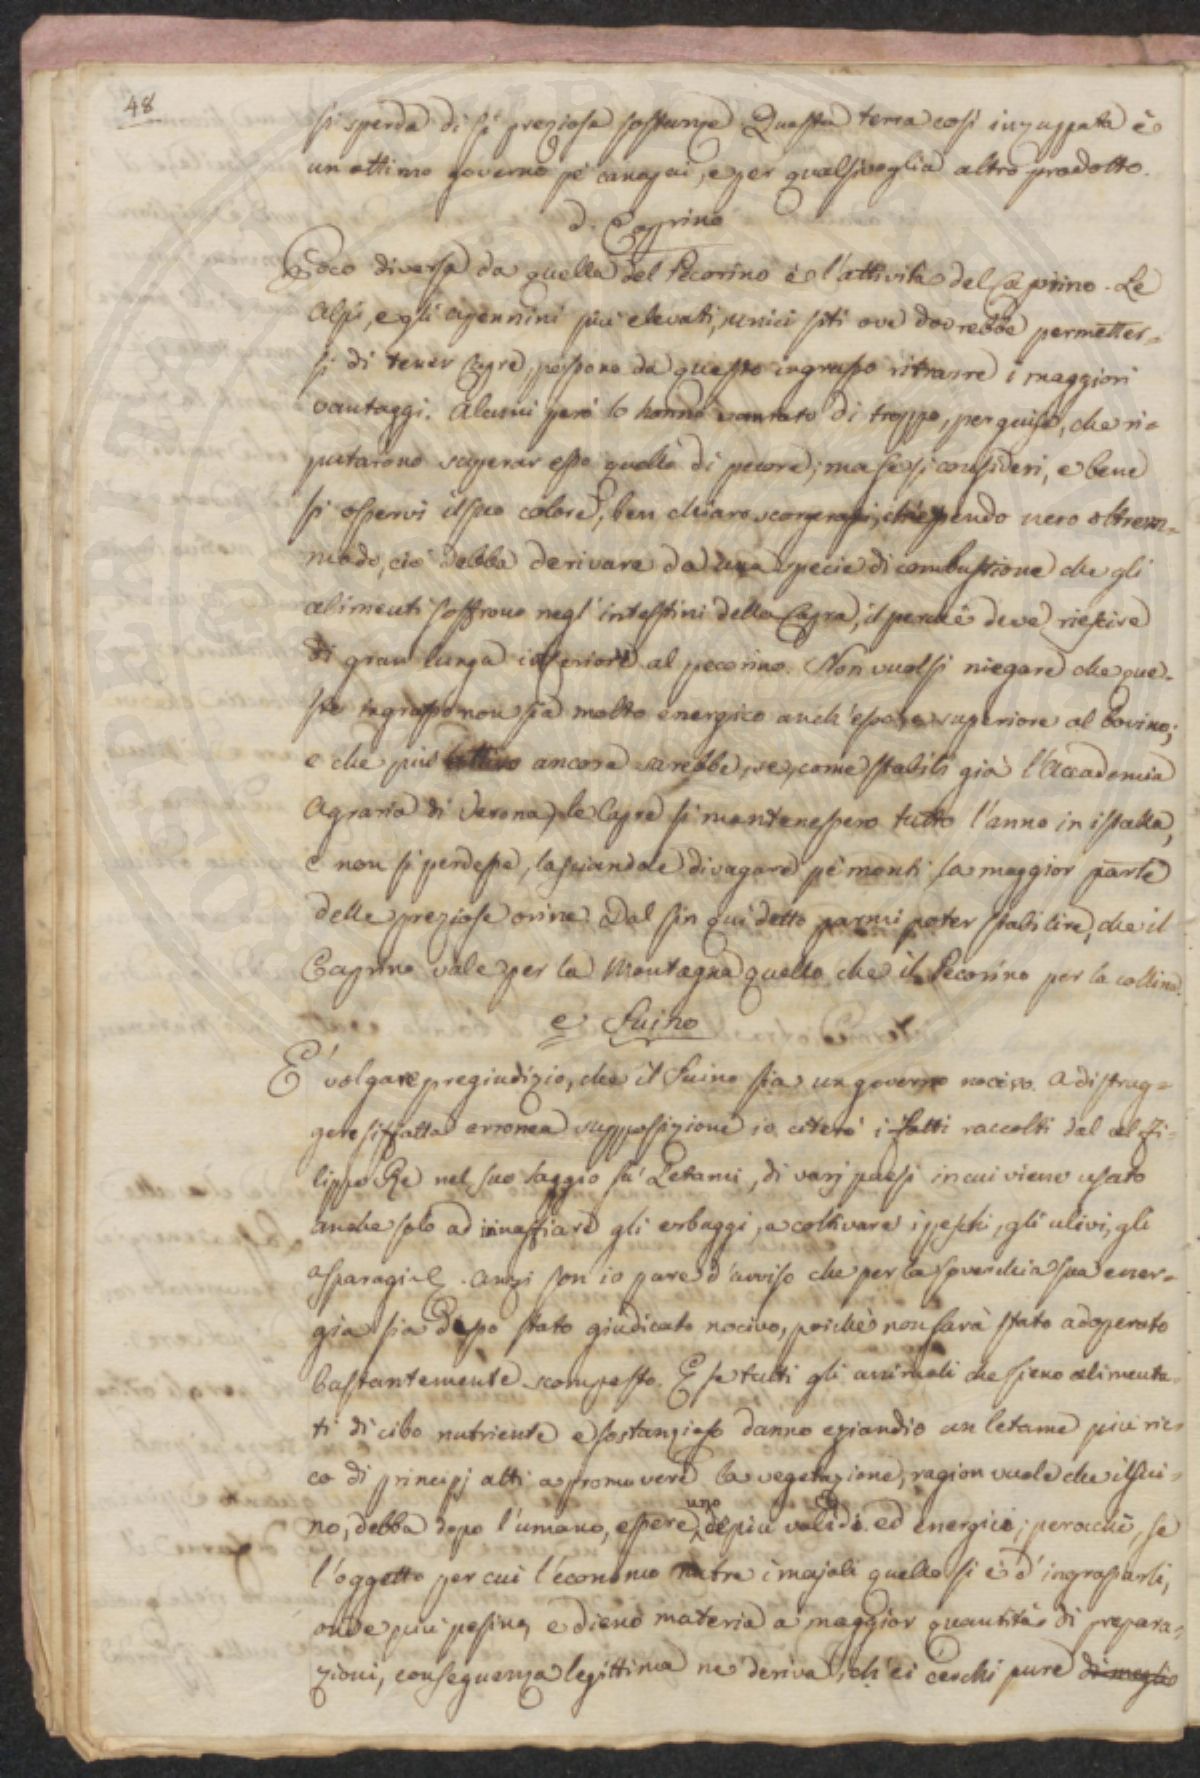 48
si sperda di sì preziose sostanze. Questa terra così inzuppata è
un ottimo governo pe' canapai, e per qualsivoglia altro prodotto.
d. Caprino
Poco diversa da quella del Pecorino è l'attività del Caprino. Le
Alpi, e gli apennini più elevati, unici siti ove dovrebbe permetter-
si di tener Capre, possono da questo ingrasso ritrarre i maggiori
vantaggi. Alcuni però lo hanno vantato di troppo, per guisa, che ri-
putarono superar esso quello di pecore; ma se si consideri, e bene
si osservi il suo colore, ben chiaro scorgerassi, ch'essendo nero oltrem-
modo, ciò debba derivare da una specie di combustione che gli
alimenti soffrono negl'intestini della Capra, il perchè deve riescire
di gran lunga inferiore al pecorino. Non vuolsi niegare che que-
sto ingrasso non sia molto energico anch'esso, e superiore al bovino;
e che più attivo ancora sarebbe, se, come stabilì già l'Accademia
Agraria di Verona, le Capre si mantenessero tutto l'anno in istalla,
e non si perdesse, lasciandole divagare pe' monti la maggior parte
delle preziose orine. Dal fin quì detto parmi poter stabilire, che il
Caprino vale per la Montagna quello che il Pecorino per la collina.
e Suino
E' volgare pregiudizio, che il Suino sia un governo nocivo. A distrug-
gere siffatta erronea supposizione io citerò i fatti raccolti dal cel. Fi-
lippo Re nel suo saggio su' Letami, di varj paesi in cui viene usato
anche solo ad innaffiare gli erbaggi, a coltivare i peschi, gli ulivi, gli
asparagi &. Anzi son io pure d'avviso che per la soverchia sua ener-
gia sia desso stato giudicato nocivo, poichè non sarà stato adoperato
bastantemente scomposto. E se tutti gli animali che sieno alimenta-
ti di cibo nutriente e sostanzioso danno eziandio un letame più ric-
co di principj atti a promuovere la vegetazione, ragion vuole che il sui-
no, debba dopo l'umano, essere uno de' più validi ed energici; perocchè, se
l'oggetto per cui l'economo nutre i majali quello si è d'ingrassarli,
onde più pesino, e dieno materia a maggior quantità di prepara-
zioni, conseguenza legittima ne deriva, ch'ei cerchi pure di meglio